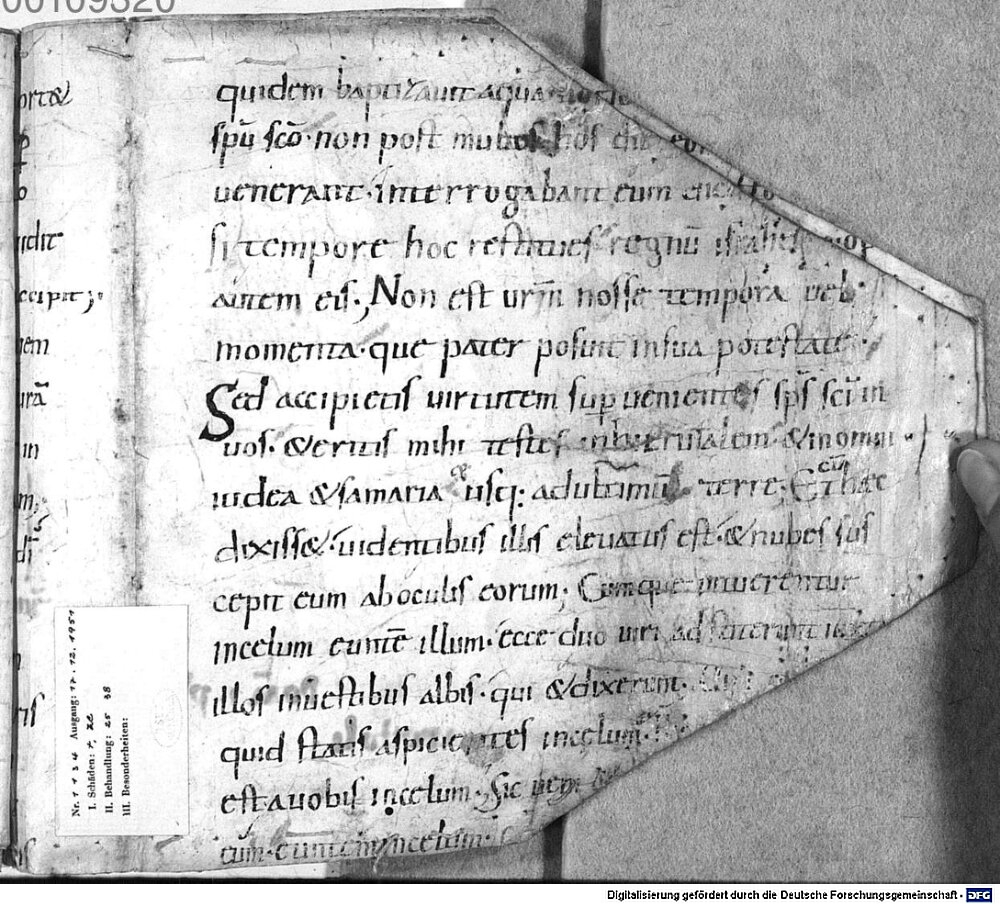 00109320
ort&
p
o
idit
ccipit;
em
urā
in
m;
di
is
quidem baptizauit aqua
spū scō· non post multos hos die
uenerant· interrogabant eum
si tempore hoc restitues regnū israhel
autem eis; Non est urm̄ nosse tempora uel
momenta· que pater posuit insua potestate·
Sed accipietis uirtutem supuenientes sps̄ scī in
uos· & eritis mihi testes inhierusalem· & inomni
iudea & samaria usq: adultimū terre; Et cū hęc
dixiss&· uidentibus illis eleuatus est· & nubes sus
cepit eum aboculis eorum; Cumque intuerentur
incelum euntē illum· ecce duo uiri adstiterunt iuxta
illos inuestibus albis· qui & dixerunt·
quid statis aspicientes incelum·
est auobis incelum· Sic ueni
eum· euntem incelum·
Nr. 1134 Ausgang: 17.12.1951
I. Schäden:
II. Behandlung: 25 38
III. Besonderheiten:
Digitalisierung gefördert durch die Deutsche Forschungsgemeinschaft - DFG